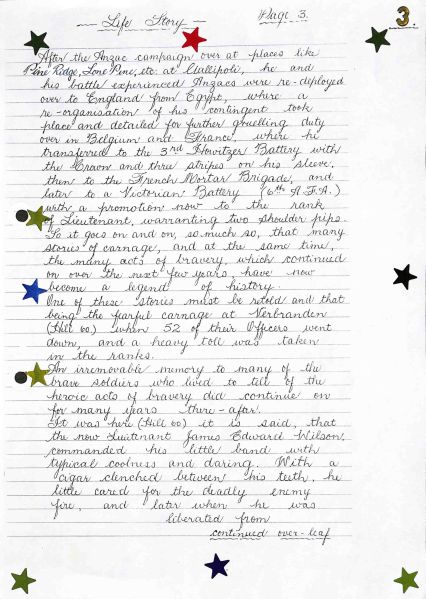 Life Story
Page 3.
3.
After the Anzac campaign over at places like
Pine Ridge, Lone Pine, etc. at Gallipoli, he and
his battle experienced Anzacs were re-deployed
over to England from Egypt, where a
re-organisation of his contingent took
place and detailed for further gruelling duty
over in Belgium and France. where he
transferred to the 3rd Howitzer Battery with
the Crown and three stripes on his sleeve.
then to the French Mortar Brigade, and
later to a Victorian Battery (6th A.F.A.)
with a promotion now to the rank
of Lieutenant, warranting two shoulder pips.
So it goes on and on, so much so, that many
stories of carnage, and at the same time,
the many acts of bravery, which continued
on over the next few years, have now
become a legend of history.
One of these stories must be retold and that
being the fearful carnage at Verbranden
(Hill 60) when 52 of their Officers went
down, and a heavy toll was taken
in the ranks.
An irremovable memory to many of the
brave soldiers who lived to tell of the
heroic acts of bravery did continue on
for many years there-after.
It was here (Hill 60) it is said, that
the now Lieutenant James Edward Wilson,
commanded his little band with
typical coolness and daring. With a
cigar clenched between his teeth, he
little cared for the deadly enemy
fire, and later when he was
liberated from
continued over-leaf